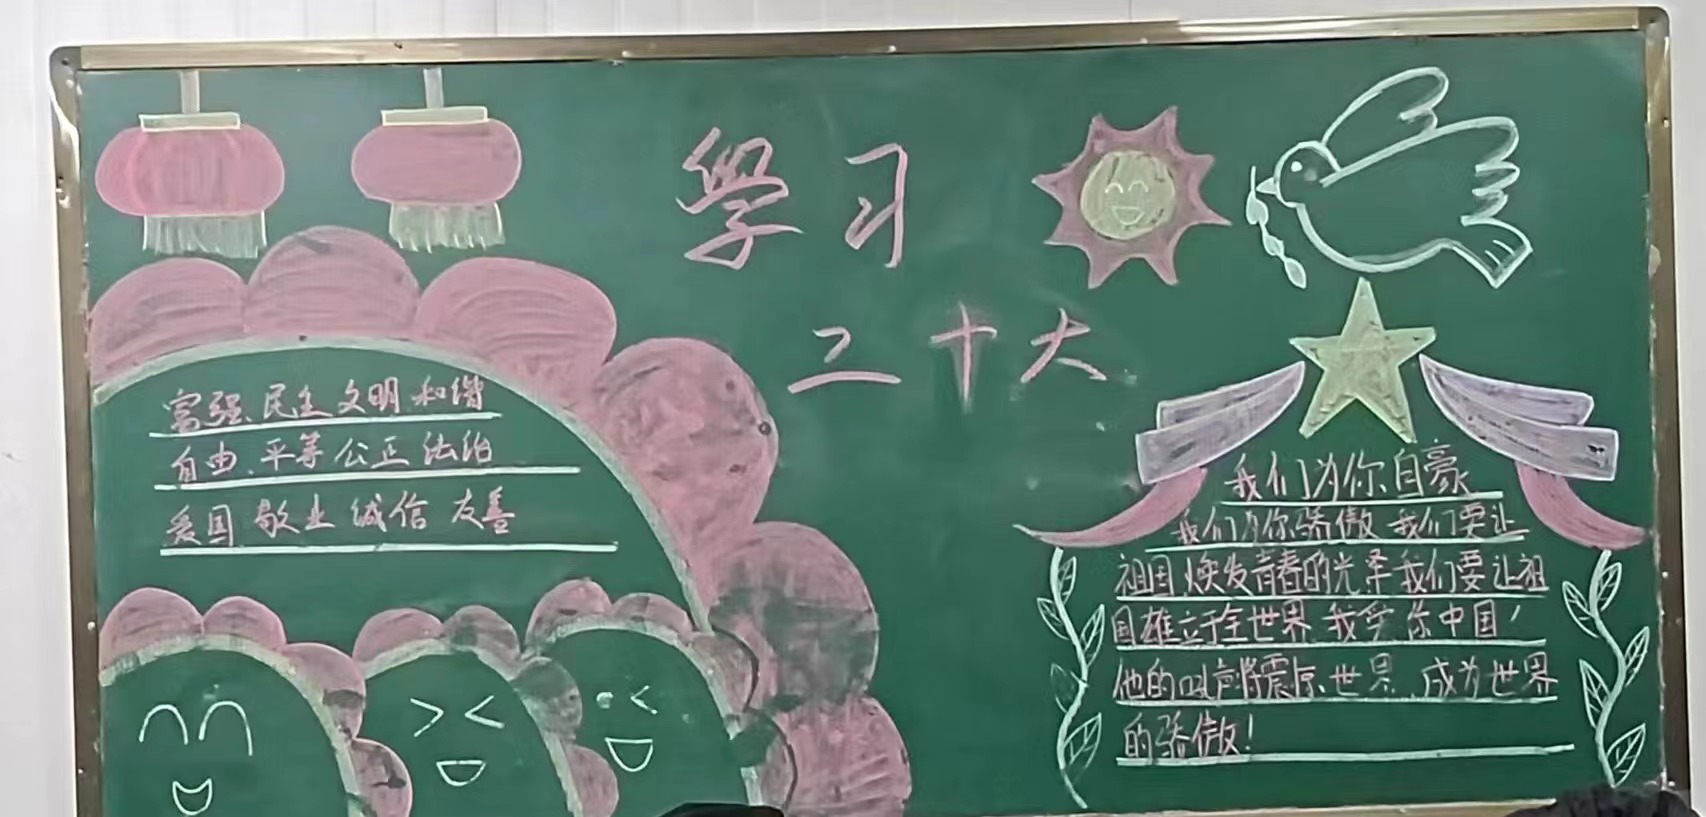 學习
二十大
富强、民主 文明 和谐
自由、平等 公正 法治
爱国 敬业 诚信 友善
我们为你自豪
我们为你骄傲 我们要让
祖国焕发青春的光泽我们要让祖
国雄立于全世界 我爱你中国!
他的吼声将震撼世界 成为世界
的骄傲!